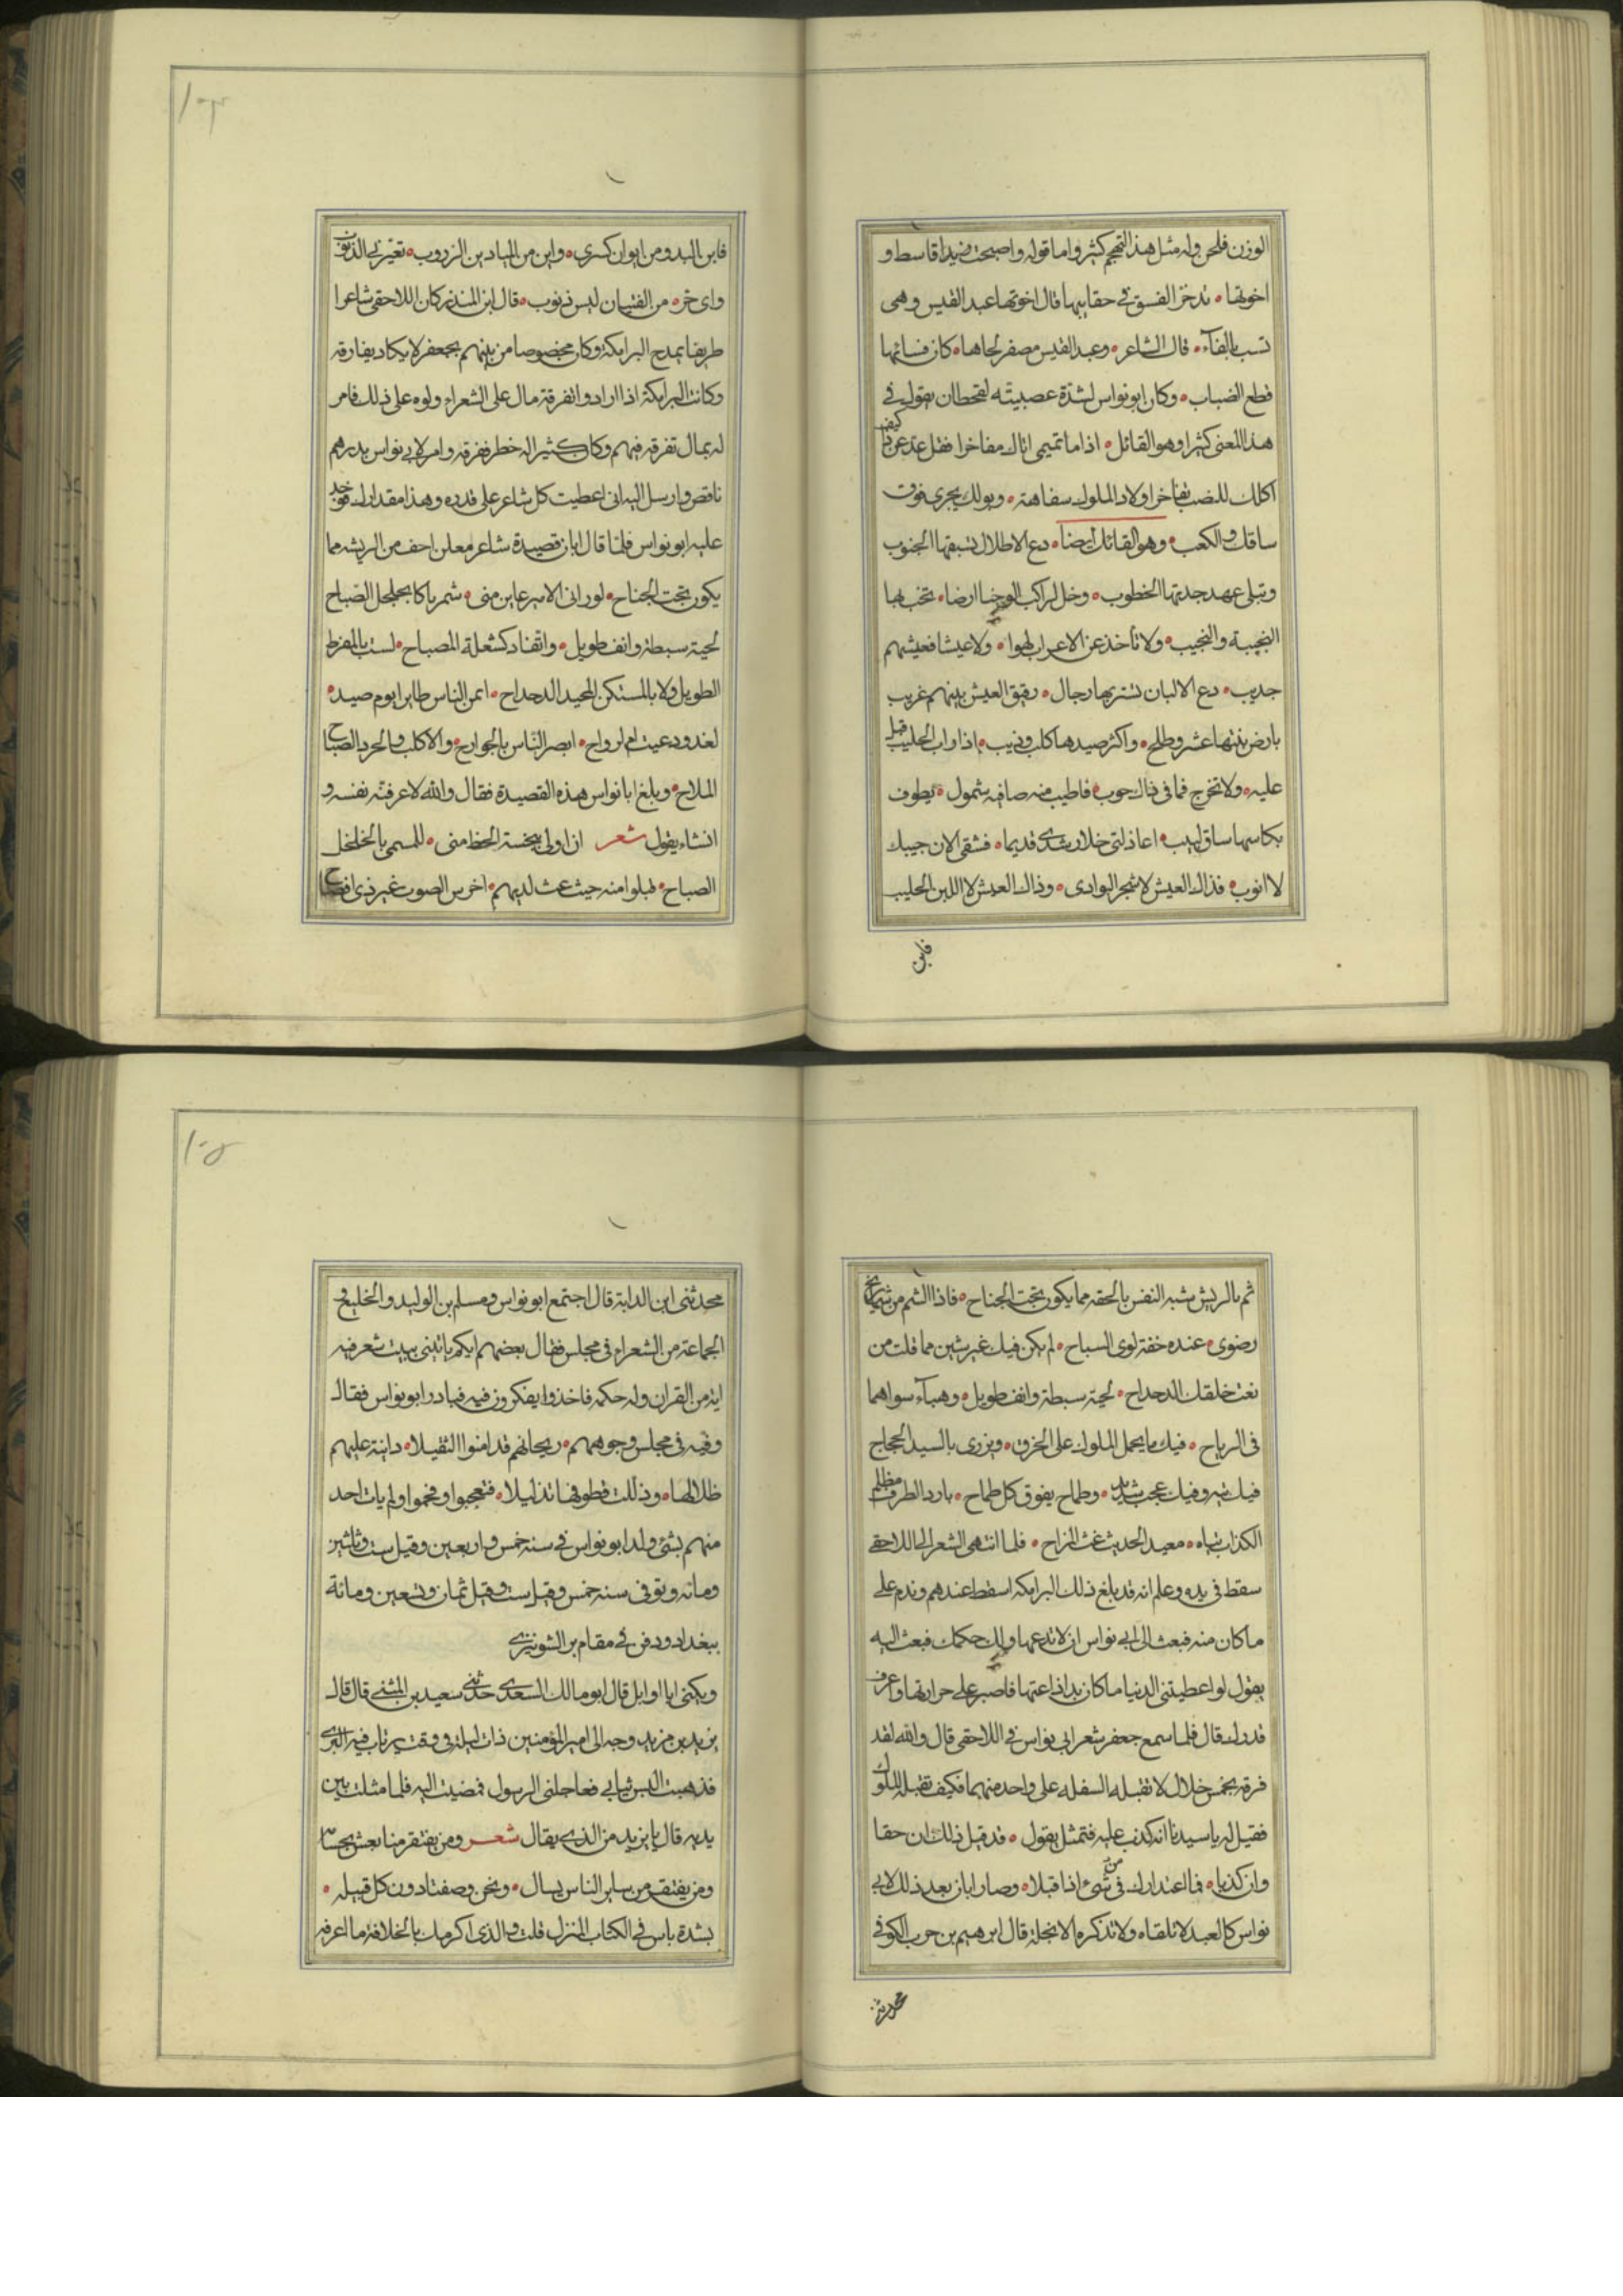 الوزن فلحن وله مثل هذا التهجم كثير واما قوله واصبحت قاسط و
اخوتها ٥ تدخر الفسق في حقايبها قال اخوتها عبد القيس وهى
تسب بالفآء ٥ قال الشاعر ٥ وعبد القيس مصفر لحاها ٥ كان فسائها
قطع الضباب ٥ وكان ابو نواس لشدة عصبيته لقحطان يقول في
هذا المعنى كثيرا وهو القائل ٥ اذا ما تميمى اتاك مفاخرا فقل عد عن ذا كيف
اكلك للضب تفاخر اولاد الملوك سفاهة ٥ وبولك يجرى فوق
ساقك والكعب ٥ وهو القائل ايضا ٥ دع الاطلال تسبقها الجنوب
وتبلى عهد جدتها الخطوب ٥ وخل لراكب الوجنا ارضا ٥ تخب بها
النجيبة والنجيب ٥ ولا تأخذ عن الاعراب لهوا ٥ ولا عيشا فعيشهم
جديب ٥ دع الالبان تشربها رجال ٥ رقيق العيش بينهم غريب
بارض نبتها عشر وطلح ٥ واكثر صيدها كلب وذيب ٥ اذا راب الحليب فبل
عليه ٥ ولا تخرج فما في ذاك حوب ٥ فاطيب منه صافيه شمول ٥ يطوف
بكاسها ساق لبيب ٥ اعاذلتى خلا رشدى قديما ٥ فشقى الان جيبك
لا اتوب ٥ فذاك العيش لا شجر البوادى ٥ وذاك العيش لا اللبن الحليب
فاين
فاين البدو من ايوان كسرى ٥ واين من الميادين الزروب ٥ تعيرنى الذنوب
واى حر ٥ من الفتيان ليس ذنوب ٥ قال ابن المنذر كان اللاحقى شاعرا
ظريفا يمدح البرامكة وكان مخصوصا من بينهم بجعفر لا يكاد يفارقه
وكانت البرامكة اذا ارادوا تفرقة مال على الشعراء ولوه على ذلك فامر
له بمال تفرقه فيهم وكان كثيرا له خطر ففرقه وامر لابي نواس بدرهم
ناقص وارسل اليه انى اعطيت كل شاعر على قدره وهذا مقدارك فوجد
عليه ابو نواس فلما قال ابان قصيدة شاعر مفلق اخف من الريشه مما
يكون تحت الجناح ٥ لو رانى الامير عاين منى ٥ شمريا كالجلجل الصباح
لحية سبطة وانف طويل ٥ واتقاد كشعلة المصباح ٥ لست بالمفرط
الطويل ولا بالمستكن المحيد الدحداح ٥ ايمن الناس طايرا يوم صيد ٥
لغدو دعيت ام لرواح ٥ ابصر الناس بالجوارح ٥ والاكلب والخرد الصباح
الملاح ٥ وبلغ ابا نواس هذه القصيدة فقال والله لاعرفنه نفسه و
انشاء يقول شعر ان اولى بخسة الحظ منى ٥ للمسمى بالجلجل
الصباح ٥ فبلوا منه حيث عث لديهم ٥ اخرس الصوت غير ذى افصاح
ثم بالريش شبه النفس بالخفه مما يكون تحت الجناح ٥ فاذا الشم من شماريخ
رضوى ٥ عنده خفة نوى السباح ٥ لم يكن فيك غير شين مما قلت من
نعت خلقك الدحداح ٥ لحية سبطة وانف طويل ٥ وهبآء سواهما
فى الرياح ٥ فيك ما يحمل الملوك على الخرق ٥ ويزرى بالسيد الجحجاح
فيك تيه وفيك عجب شديد ٥ وطماح يفوق كل طماح ٥ بارد الطرف مظلم
الكذاب تياه ٥ معيد الحديث غث المزاح ٥ فلما انتهى الشعر الى اللاحقى
سقط فى يده وعلم انه قد بلغ ذلك البرامكه اسقط عندهم وندم على
ما كان منه فبعث الى ابي نواس ان لا تدعها ولك حكمك فبعث اليه
يقول لو اعطيتنى الدنيا ما كان بد اذاعتها فاصبر على حرارتها واعرف
قدرك قال فلما سمع جعفر شعر ابي نواس في اللاحقى قال والله لقد
قرفه بخمس خلال لا تقبله السفله على واحد منهما فكيف تقبله الملوك
فقيل له يا سيدنا انه كذب عليه فتمثل يقول ٥ قد قيل ذلك ان حقا
وان كذبا ٥ فما اعتذارك من فى شئ اذا قبلا ٥ وصار ابان بعد ذلك لابي
نواس كالعبد لا تلقاه ولا تذكره الا بجلة قال ابرهيم بن حرب الكوفي
محدثنى
محدثنى ابن الداية قال اجتمع ابو نواس ومسلم بن الوليد والخليع و
الجماعة من الشعراء فى مجلس فقال بعضهم ايكم ياتينى ببيت شعر فيه
اية من القران وله حكمه فاخذوا يفكرون فيه فبادر ابو نواس فقال
وفتيه فى مجلس وجوههم ٥ ريحانهم قد امنوا الثقيلا ٥ دانية عليهم
ظلالها ٥ وذللت قطوفها تذليلا ٥ فتعجبوا وفخموا ولم يات احد
منهم بشئ ولد ابو نواس في سنه خمس واربعين وقيل ست وثلثين
ومائه وتوفى سنه خمس وقيل ست وقيل ثمان وتسعين ومائة
ببغداد ودفن في مقام بن الشونيزى
ويكنى ابا اوايل قال ابو مالك السعدى حدثنى سعيد بن المثنى قال قال
يزيد بن مزيد وجه الى امير المؤمنين ذات ليلة فى وقت يرتاب فيه البرى
فذهبت البس ثيابي فعاجلنى الرسول فمضيت اليه فلما مثلت بين
يديه قال يا يزيد من الذى يقال شعر ومن يفتقر منا يعش بحسامه
ومن يفتقر من ساير الناس يسال ٥ ونحن وصفنا دون كل قبيله ٥
بشدة باس في الكتاب المنزل قلت والذى اكرمك بالخلافة ما اعرفه